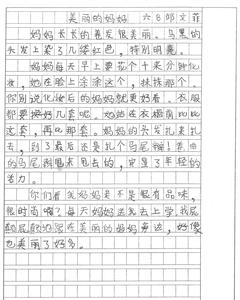 美丽的妈妈 六8邱文菲
妈妈长长的卷发很美丽。乌黑的
头发上染了几缕红色，特别明亮。
妈妈每天早上要花个十来分钟化
妆，她在脸上涂涂这个，抹抹那个。
你别说化妆后的妈妈就更好看。衣服
都要换好几套呢。她站在衣橱前比比
这套，再比那套。妈妈的头发扎来扎
去，到了最后还是扎个马尾辫。黄曲
的马尾甩来甩去的，更显了年轻的
活力。
你们看我妈妈是不是很有品味，
很时尚啊？每天妈妈送我去上学，我屁
颠屁颠地跟在美丽的妈妈旁边，好像
也美丽了好多。